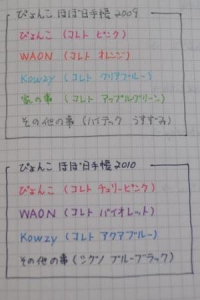 ぴょんこ ほぼ日手帳 2009
ぴょんこ (コレト ピンク)
WAON (コレト オレンジ)
Kowzy (コレト クリアブルー)
家の事 (コレト アップルグリーン)
その他の事 (ハイテック うすずみ)
ぴょんこ ほぼ日手帳 2010
ぴょんこ (コレト チェリーピンク)
WAON (コレト バイオレット)
Kowzy (コレト アクアブルー)
その他の事 (シグノ ブルーブラック)